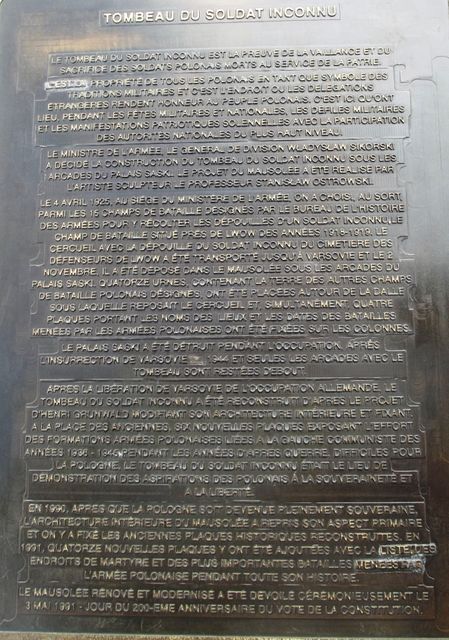 TOMBEAU DU SOLDAT INCONNU
LE TOMBEAU DU SOLDAT INCONNU EST LA PREUVE DE LA VAILLANCE ET DU
SACRIFICE DES SOLDATS POLONAIS MORTS AU SERVICE DE LA PATRIE.
C'EST LA PROPRIÉTÉ DE TOUS LES POLONAIS EN TANT QUE SYMBOLE DES
TRADITIONS MILITAIRES ET C'EST L'ENDROIT OU LES DELEGATIONS
ÉTRANGÈRES RENDENT HONNEUR AU PEUPLE POLONAIS. C'EST ICI QU'ONT
LIEU, PENDANT LES FÊTES MILITAIRES ET NATIONALES, LES DEFILES MILITAIRES
ET LES MANIFESTATIONS PATRIOTIQUES SOLENNELLES AVEC LA PARTICIPATION
DES AUTORITÉS NATIONALES DU PLUS HAUT NIVEAU.
LE MINISTRE DE L'ARMÉE, LE GENERAL DE DIVISION WŁADYSŁAW SIKORSKI
A DÉCIDÉ LA CONSTRUCTION DU TOMBEAU DU SOLDAT INCONNU SOUS LES
ARCADES DU PALAIS SASKI. LE PROJET DU MAUSOLÉE A ÉTÉ RÉALISÉ PAR
L'ARTISTE SCULPTEUR LE PROFESSEUR STANISŁAW OSTROWSKI.
LE 4 AVRIL 1925, AU SIÈGE DU MINISTÈRE DE L'ARMÉE, ON A CHOISI, AU SORT,
PARMI LES 15 CHAMPS DE BATAILLE DÉSIGNÉS PAR LE BUREAU DE L'HISTOIRE
DES ARMÉES POUR Y RÉCOLTER LES DÉPOUILLES D'UN SOLDAT INCONNU, LE
CHAMP DE BATAILLE SITUÉ PRÈS DE LWOW DES ANNÉES 1918-1919. LE
CERCUEIL AVEC LA DÉPOUILLE DU SOLDAT INCONNU DU CIMETIÈRE DES
DÉFENSEURS DE LWOW A ÉTÉ TRANSPORTÉ JUSQU'À VARSOVIE ET LE 2
NOVEMBRE, IL A ÉTÉ DÉPOSÉ DANS LE MAUSOLÉE SOUS LES ARCADES DU
PALAIS SASKI. QUATORZE URNES, CONTENANT LA TERRE DES AUTRES CHAMPS
DE BATAILLE POLONAIS DÉSIGNÉS, ONT ÉTÉ PLACÉES AUTOUR DE LA DALLE
SOUS LAQUELLE REPOSAIT LE CERCUEIL ET, SIMULTANÉMENT, QUATRE
PLAQUES PORTANT LES NOMS DES LIEUX ET LES DATES DES BATAILLES
MENÉES PAR LES ARMÉES POLONAISES ONT ÉTÉ FIXÉES SUR LES COLONNES.
LE PALAIS SASKI A ÉTÉ DÉTRUIT PENDANT L'OCCUPATION, APRÈS
L'INSURRECTION DE VARSOVIE 1944 ET SEULES LES ARCADES AVEC LE
TOMBEAU SONT RESTÉES DEBOUT.
APRÈS LA LIBÉRATION DE VARSOVIE DE L'OCCUPATION ALLEMANDE, LE
TOMBEAU DU SOLDAT INCONNU A ÉTÉ RECONSTRUIT D'APRÈS LE PROJET
D'HENRI GRUNWALD MODIFIANT SON ARCHITECTURE INTÉRIEURE ET FIXANT,
À LA PLACE DES ANCIENNES, SIX NOUVELLES PLAQUES EXPOSANT L'EFFORT
DES FORMATIONS ARMÉES POLONAISES LIÉES À LA GAUCHE COMMUNISTE DES
ANNÉES 1936 - 1945. PENDANT LES ANNÉES D'APRÈS GUERRE, DIFFICILES POUR
LA POLOGNE, LE TOMBEAU DU SOLDAT INCONNU ÉTAIT LE LIEU DE
DÉMONSTRATION DES ASPIRATIONS DES POLONAIS À LA SOUVERAINETÉ ET
A LA LIBERTÉ.
EN 1990, APRES QUE LA POLOGNE SOIT DEVENUE PLEINEMENT SOUVERAINE,
L'ARCHITECTURE INTÉRIEURE DU MAUSOLÉE A REPRIS SON ASPECT PRIMAIRE
ET ON Y A FIXÉ LES ANCIENNES PLAQUES HISTORIQUES RECONSTRUITES. EN
1991, QUATORZE NOUVELLES PLAQUES Y ONT ÉTÉ AJOUTÉES AVEC LA LISTE DES
ENDROITS DE MARTYRE ET DES PLUS IMPORTANTES BATAILLES MENÉES PAR
L'ARMÉE POLONAISE PENDANT TOUTE SON HISTOIRE.
LE MAUSOLÉE RÉNOVÉ ET MODERNISÉ A ÉTÉ DÉVOILÉ CÉRÉMONIEUSEMENT LE
3 MAI 1991 - JOUR DU 200-EME ANNIVERSAIRE DU VOTE DE LA CONSTITUTION.